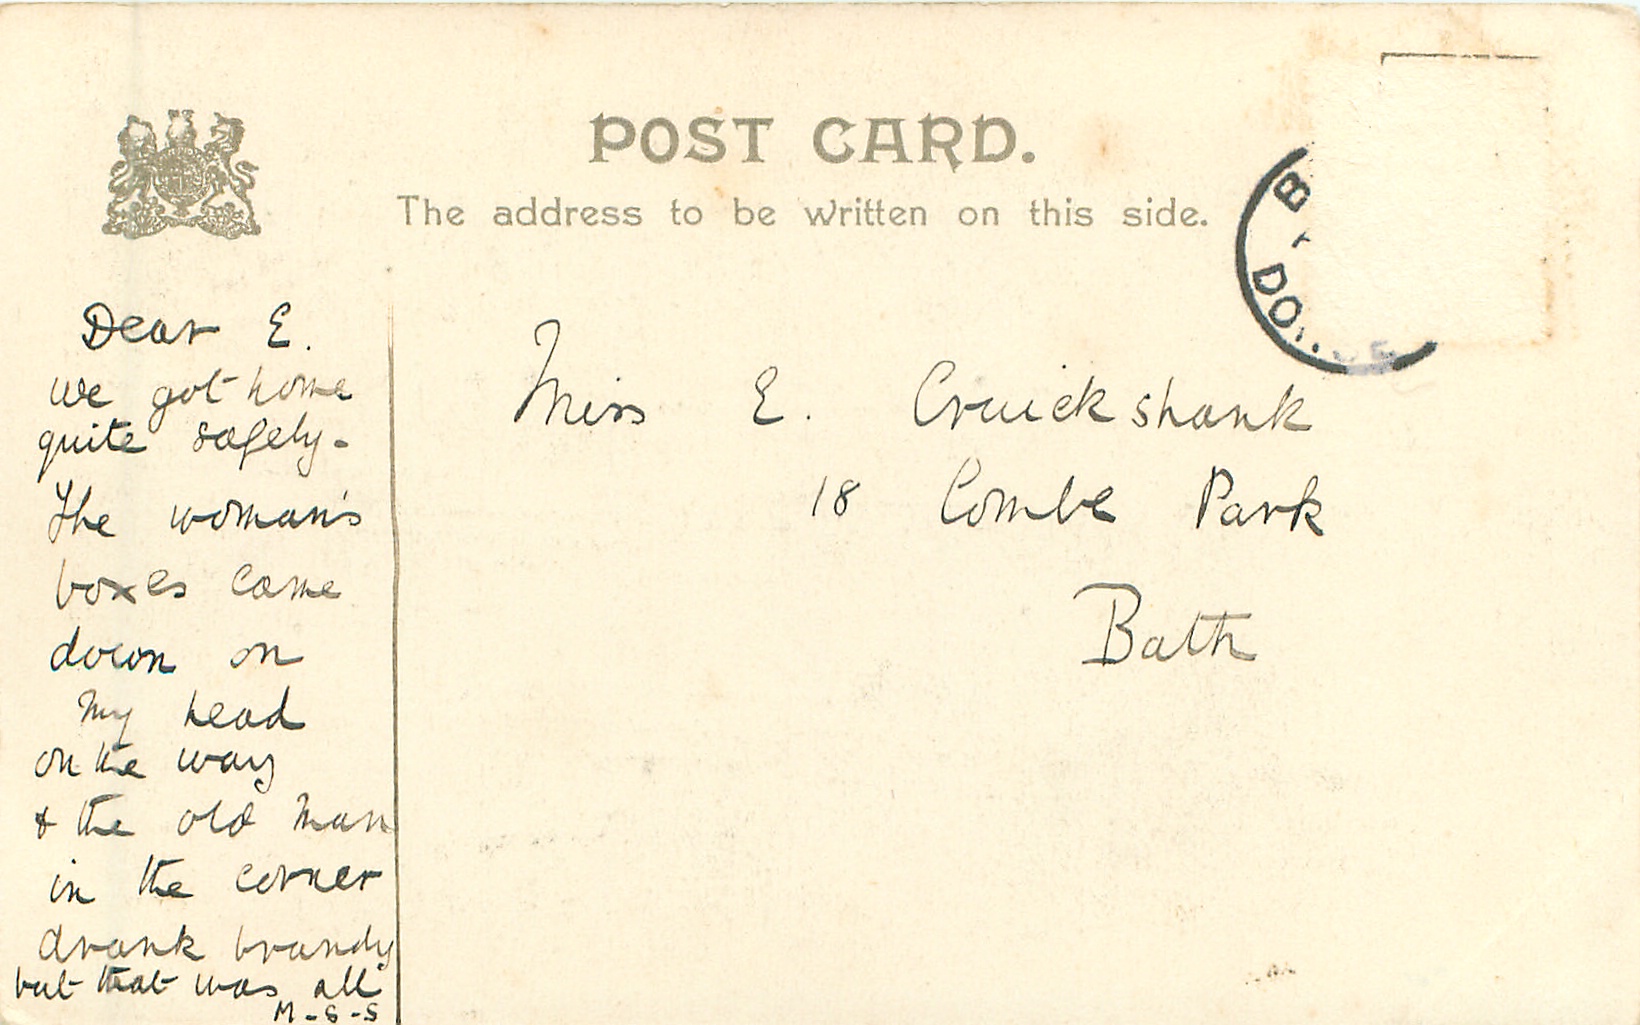 POST CARD.
The address to be written on this side.
Dear E.
we got home
quite safely -
The woman's
boxes came
down on
my head
on the way
& the old man
in the corner
drank brandy
but that was all
M-S-S
Miss E. Cruickshank
18 Combe Park
Bath